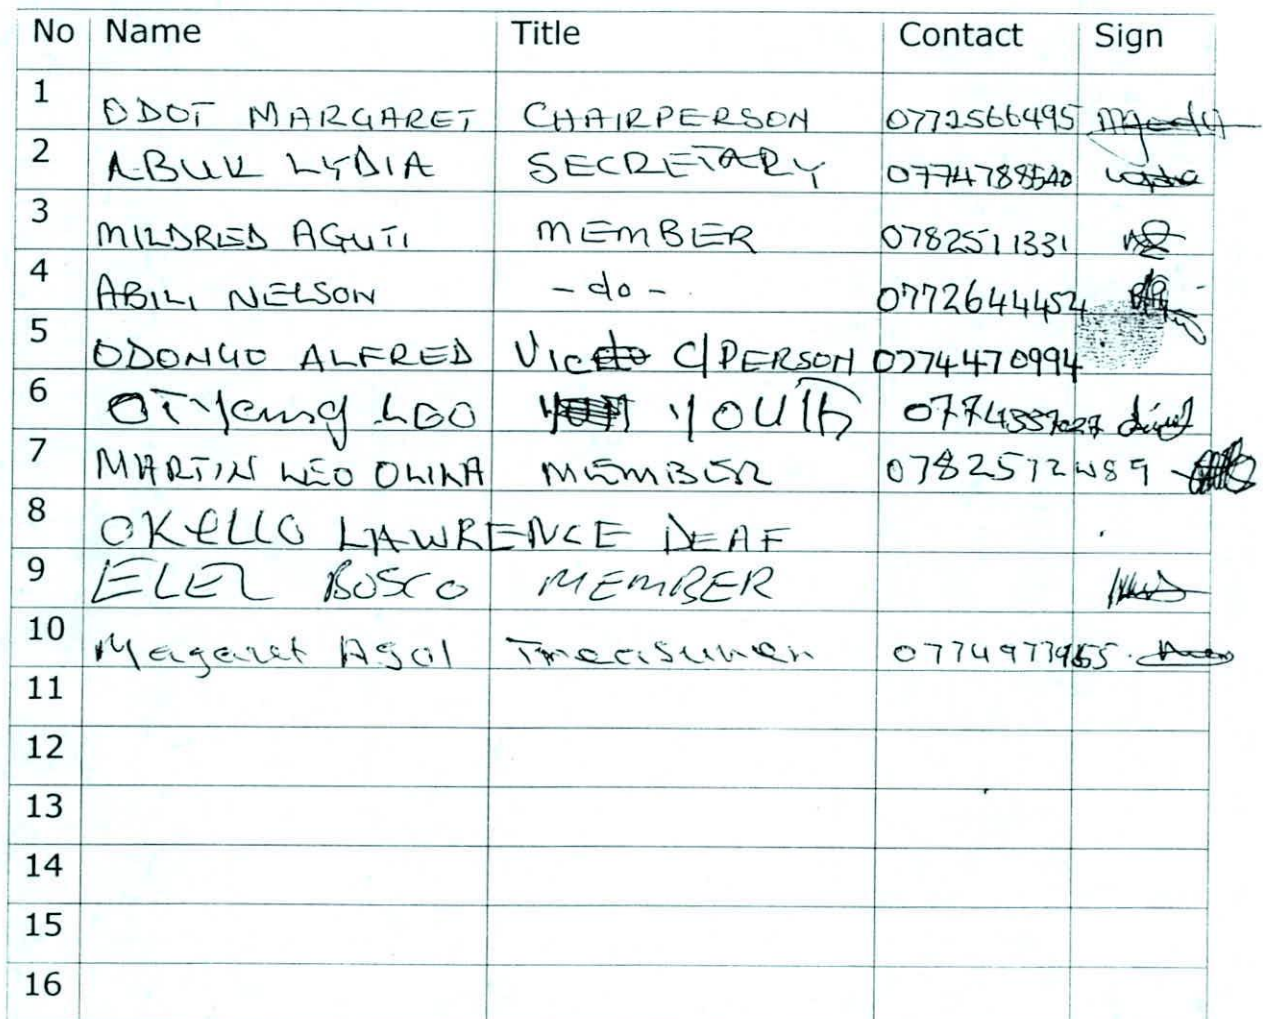 No Name Title Contact Sign
1 ODOT MARGARET CHAIRPERSON 0772566495
2 ABUK LYDIA SECRETARY 0774788540
3 MILDRED AGUTI MEMBER 0782511331
4 ABILI NELSON - do - 0772644454
5 ODONGO ALFRED Vice C/PERSON 0774470994
6 OTYang LEO YOUTH
7 MARTIN LEO OLINA MEMBER 0782572489
8 OKELLO LAWRENCE DEAF
9 ELEZ BOSCO MEMBER
10 Magaret Agal Treasurer 0774977965
11
12
13
14
15
16